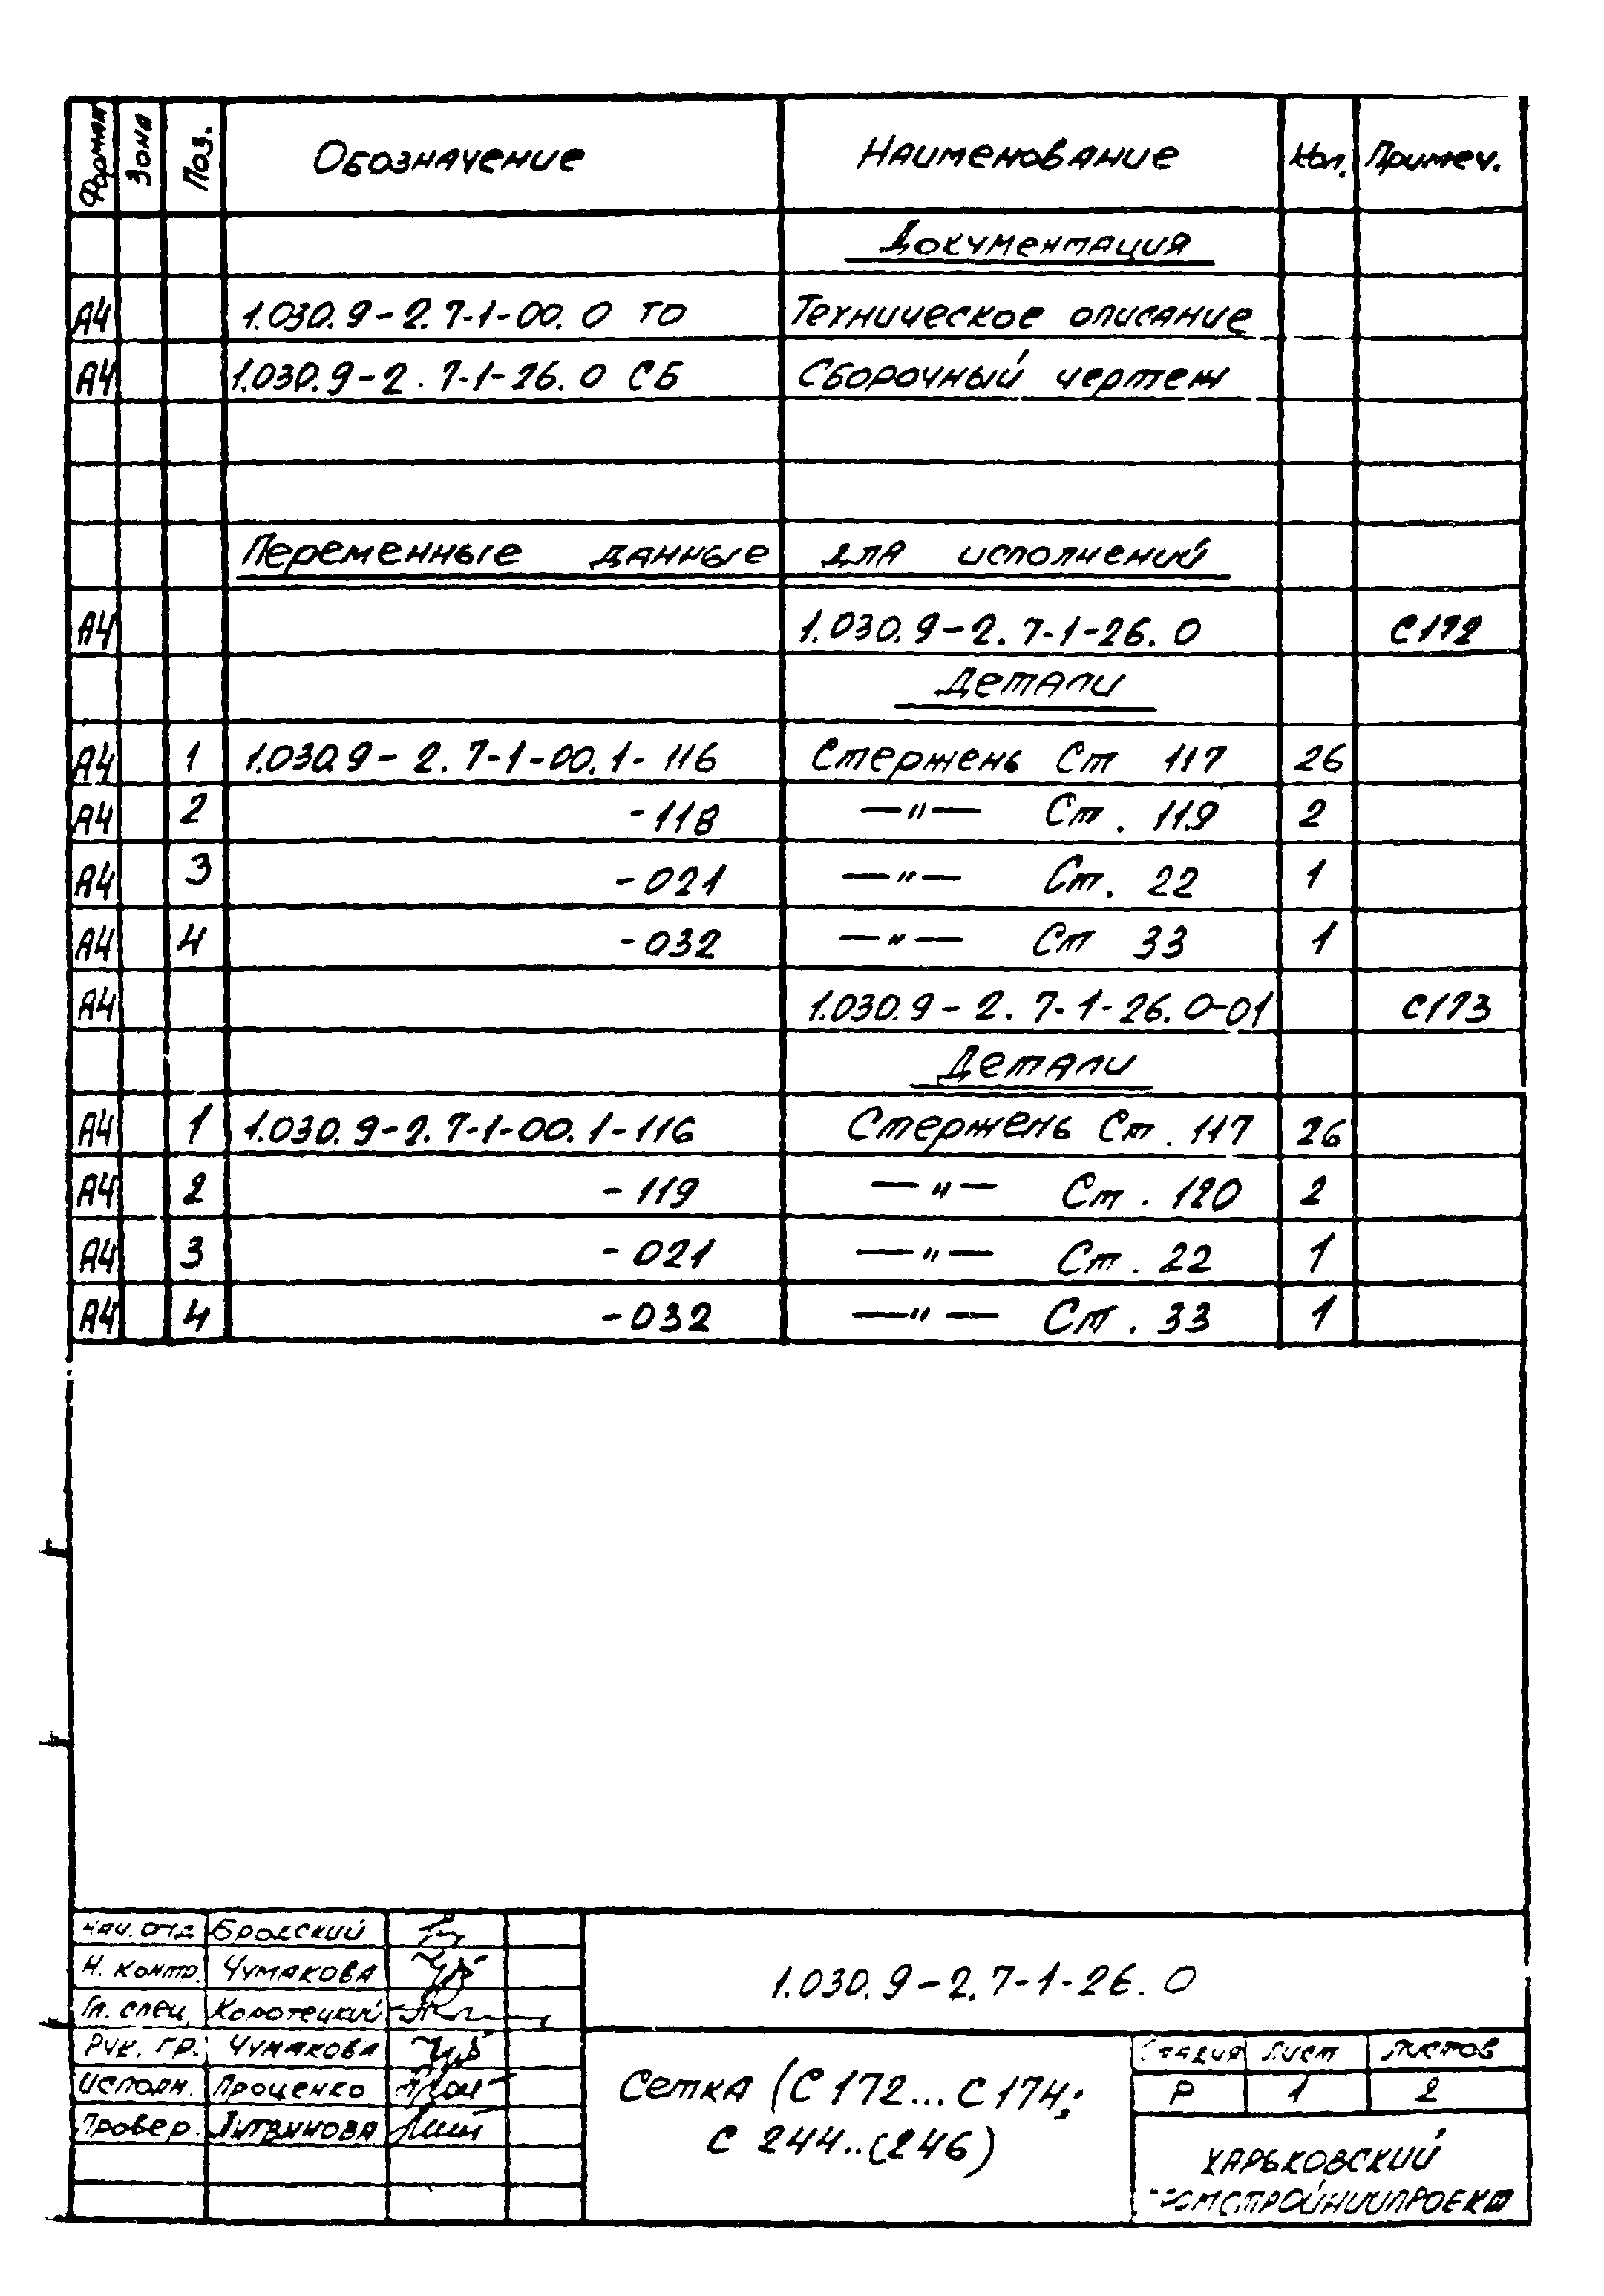 Формат Зона Поз. Обозначение Наименование Кол. Примеч.
Документация
А4 1.030.9-2.7-1-00.0 ТО Техническое описание
А4 1.030.9-2.7-1-26.0 СБ Сборочный чертеж
Переменные данные для исполнений
А4 1.030.9-2.7-1-26.0 С172
Детали
А4 1 1.030.9-2.7-1-00.1-116 Стержень Ст 117 26
А4 2 -118 —"— Ст. 119 2
А4 3 -021 —"— Ст. 22 1
А4 4 -032 —"— Ст 33 1
А4 1.030.9-2.7-1-26.0-01 С173
Детали
А4 1 1.030.9-2.7-1-00.1-116 Стержень Ст. 117 26
А4 2 -119 —"— Ст. 120 2
А4 3 -021 —"— Ст. 22 1
А4 4 -032 —"— Ст. 33 1
Нач. отд Бродский
Н. контр. Чумакова
Гл. спец. Коротецкий
Рук. гр. Чумакова
Исполн. Проценко
Провер. Литвинова
1.030.9-2.7-1-26.0
Сетка (С172...С174;
С 244..(246)
Стадия Лист Листов
Р 1 2
ХАРЬКОВСКИЙ
ПРОМСТРОЙНИИПРОЕКТ